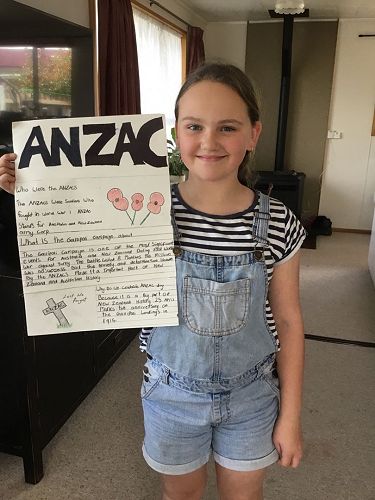 ANZAC
Who Were the ANZACS
The ANZACS Were Soldiers Who
Fought in World War 1 ANZAC
Stands for Australian and New Zealand
Army Corp
What IS the Campaign about
The Gallipoli Campaign is one of the Most Significant
Events for Australia and New Zealand During
was against the Battle
was and the and determination
By the ANZACS Made it a Important Part of New
Zealand and Australian History
Lest We
Forget
Why Do we Celebrate ANZAC day
Because it is a Big part of
New Zealand History 25 April
Marks the anniversary of
the Landings in
1915